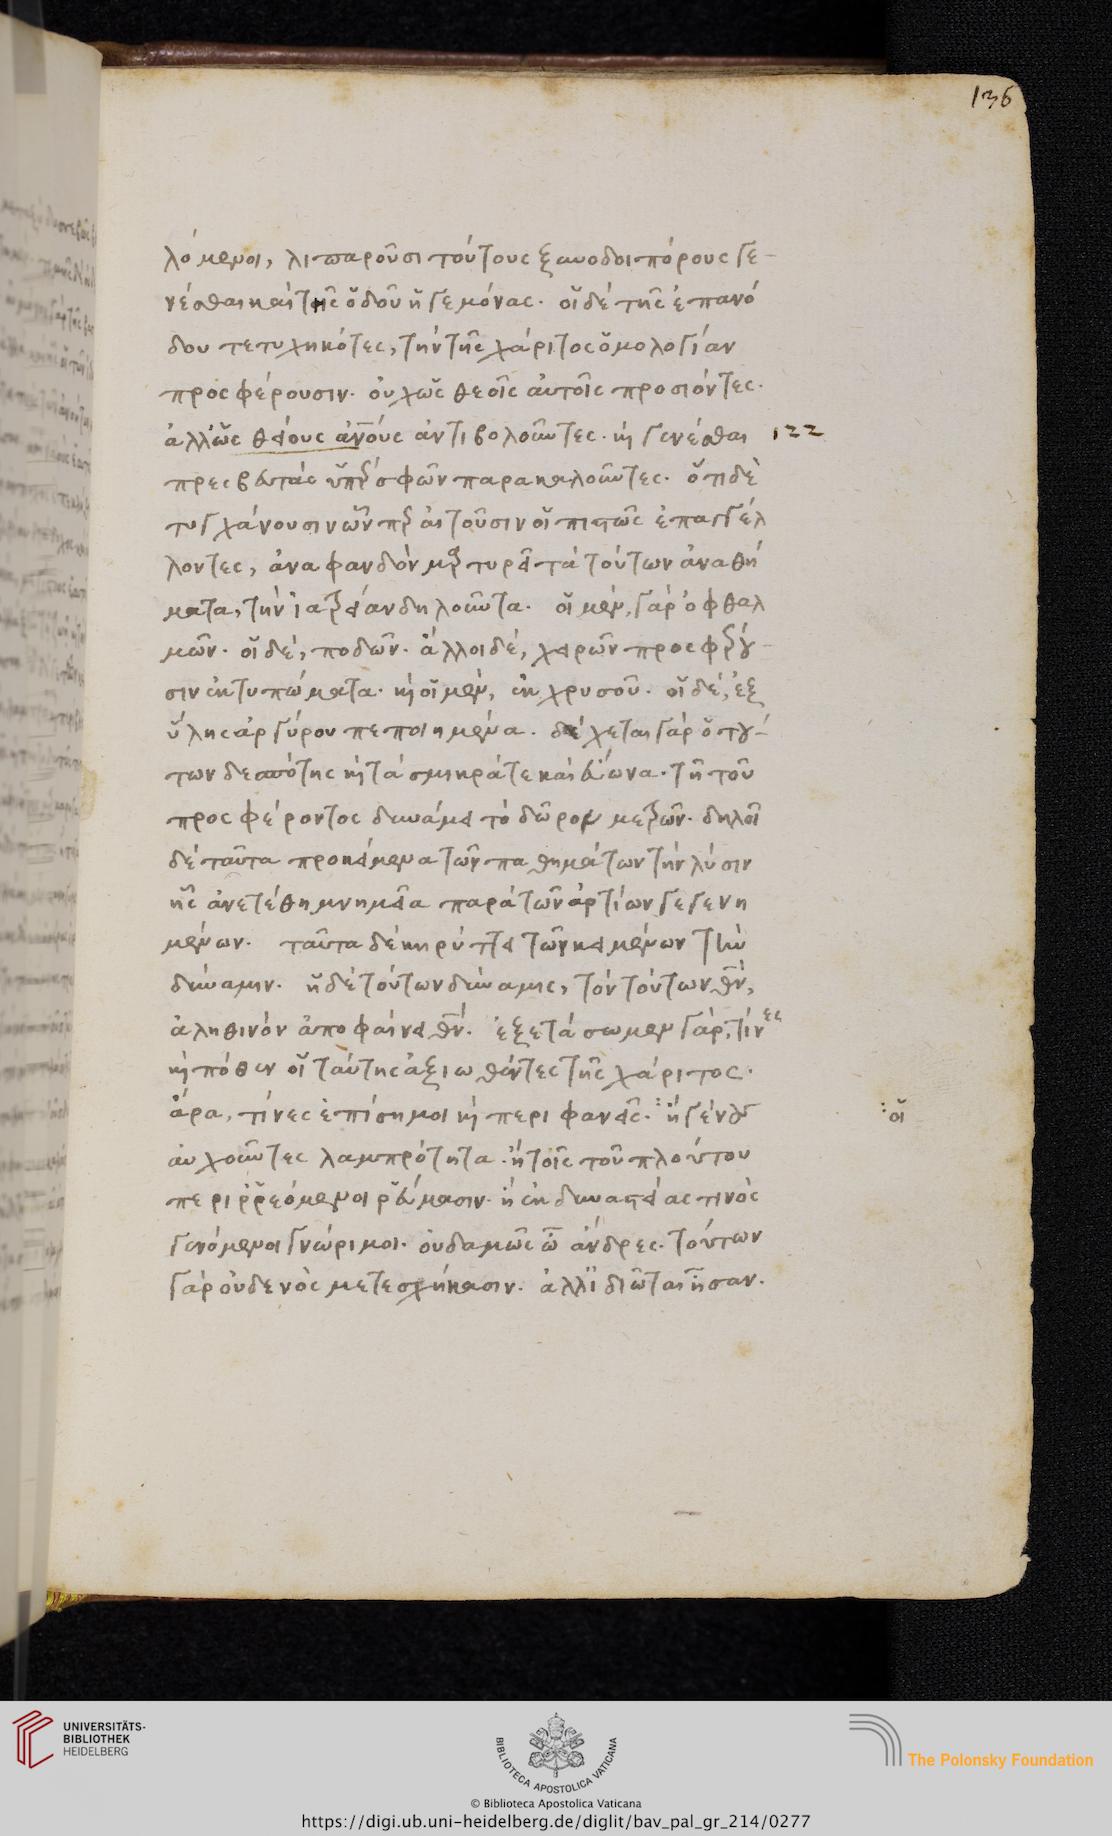 136
λόμενοι, λιπαροῦσι τούτους ξυνοδοιπόρους γε-
νέσθαι καὶ τῆς ὁδοῦ ἡγεμόνας. οἱ δὲ τῆς ἐπανό
δου τετυχηκότες, τὴν τῆς χάριτος ὁμολογίαν
προσφέρουσιν. οὐχ ὡς θεοῖς αὐτοῖς προσιόντες.
ἀλλ' ὡς θείους ἀνους ἀντιβολοῦντες. κὶ γενέσθαι
122
πρεσβευτὰς ὑπὲρ σφῶν παρακαλοῦντες. ὅτι δὲ
τυγχάνουσιν ὧν περ αἰτοῦσιν οἱ πιστῶς ἐπαγγέλ
λοντες, ἀναφανδὸν μαρτυρεῖ τὰ τούτων ἀναθή
ματα, τὴν ἰατρείαν δηλοῦντα. οἱ μὲν, γὰρ ὀφθαλ
μῶν. οἱ δέ, ποδῶν. ἄλλοι δέ, χειρῶν προσφέρου-
σιν ἐκτυπώματα. κὶ οἱ μὲν, ἐκ χρυσοῦ. οἱ δέ, ἐξ
ὕλης ἀργύρου πεποιημένα. δέχεται γὰρ ὁ τού-
των δεσπότης κὶ τὰ σμικρά τε καὶ εὔωνα. τῆ τοῦ
προσφέροντος δυνάμει τὸ δῶρον μετρῶν. δηλοῖ
δὲ ταῦτα προκείμενα τῶν παθημάτων τὴν λύσιν
ἧς ἀνετέθη μνημεῖα παρὰ τῶν ἀρτίων γεγενη
μένων. ταῦτα δὲ κηρύττει τῶν κειμένων τὴν
δύναμιν. ἡ δὲ τούτων δύναμις, τὸν τούτων θν,
ἀληθινὸν ἀποφαίνει θν. ἐξετάσωμεν γάρ, τίνες
κὶ πόθεν οἱ ταύτης ἀξιωθέντες τῆς χάριτος.
ἆρα, τίνες ἐπίσημοι κὶ περιφανεῖς. ἢ γένους
:οἱ
αὐχοῦντες λαμπρότητα. ἢ τοῖς τοῦ πλούτου
περιῤῥεόμενοι ῥεύμασιν. ἢ ἐκ δυναστείας τινὸς
γενόμενοι γνώριμοι. οὐδαμῶς ὦ ἄνδρες. τούτων
γὰρ οὐδενὸς μετεσχήκασιν. ἀλλ' ἰδιῶται ἦσαν.
UNIVERSITÄTS-
BIBLIOTHEK
HEIDELBERG
BIBLIOTECA APOSTOLICA VATICANA
The Polonsky Foundation
© Biblioteca Apostolica Vaticana
https://digi.ub.uni-heidelberg.de/diglit/bav_pal_gr_214/0277